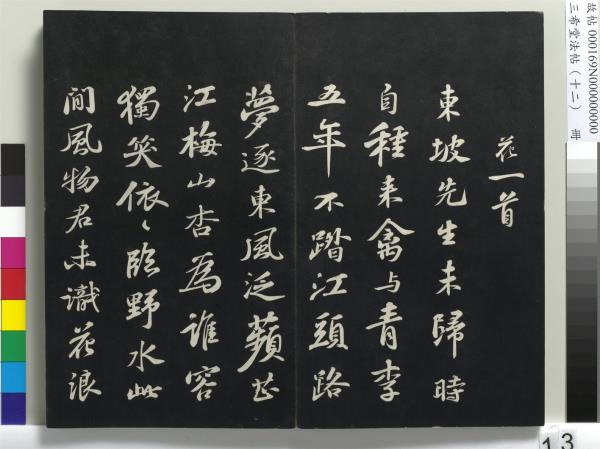 花一首
東坡先生未歸時
自種来禽与青李
五年不踏江頭路
夢逐東風泛蘋芷
江梅山杏為誰容
獨笑依〻臨野水此
間風物君未識花浪
故帖 000169N000000000
三希堂法帖（十二） 冊
13